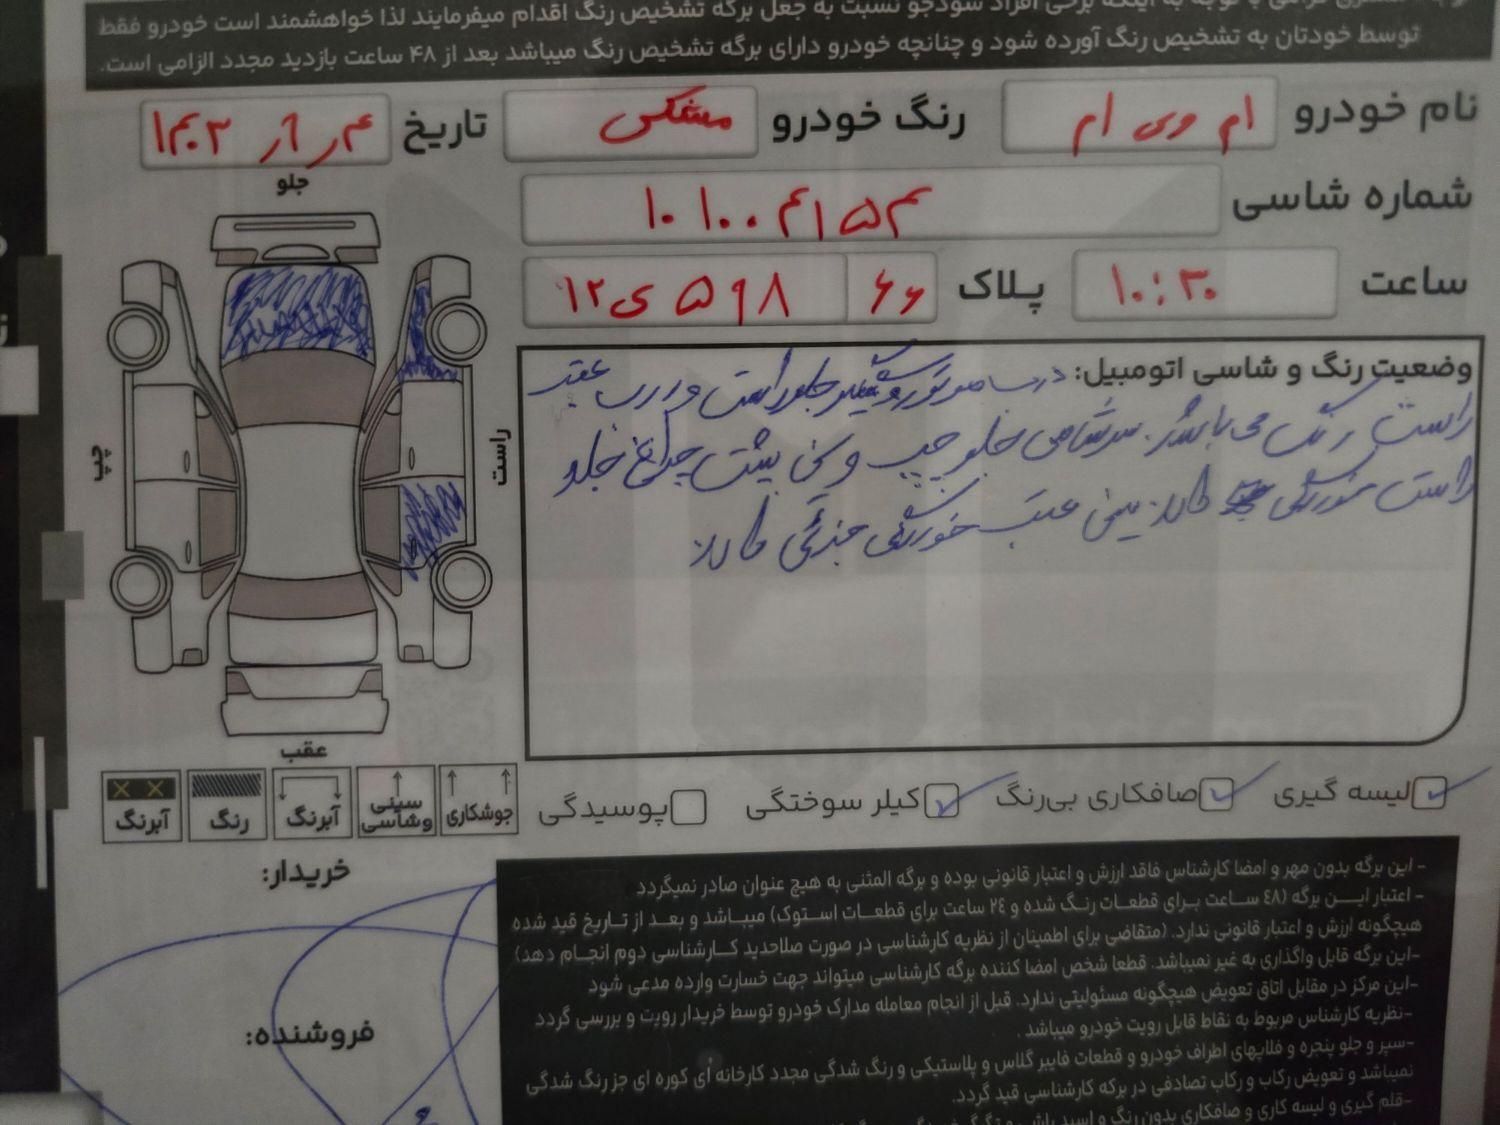 توسط خودتان به تشخیص رنگ آورده شود و چنانچه خودرو دارای برگه تشخیص رنگ میباشد بعد از ۴۸ ساعت بازدید مجدد الزامی است.
نام خودرو ام وی ام رنگ خودرو مشکی تاریخ
جلو
شماره شاسی ۱۰۱۰۰۴۱۵۴
ساعت ۱۰:۳۰ پلاک ۶۶ ۵۹۸ ی ۱۲
وضعیت رنگ و شاسی اتومبیل: درب موتور و گلگیر جلو راست و درب عقب
راست رنگ می باشد. سرشاسی جلو چپ و سینی پشت چراغ جلو
راست خوردگی دارد. سینی عقب خوردگی جزئی دارد.
چپ
راست
عقب
لیسه گیری صافکاری بی‌رنگ کیلر سوختگی پوسیدگی
جوشکاری سینی وشاسی آبرنگ رنگ آبرنگ
خریدار:
فروشنده:
- این برگه بدون مهر و امضا کارشناس فاقد ارزش و اعتبار قانونی بوده و برگه المثنی به هیچ عنوان صادر نمیگردد
- اعتبار ایـــن برگه (٤٨ ساعت بـرای قطعات رنگ شده و ٢٤ ساعت برای قطعـات اسـتوک) میبـاشد و بعـد از تـاریخ قید شده
هیچگونه ارزش و اعتبار قانونی ندارد. (متقاضی برای اطمینان از نظریه کارشناسی در صورت صلاحدید کـارشناسی دوم انجـام دهد)
-این برگه قابل واگذاری به غیر نمیباشد. قطعا شخص امضا کننده برگه کارشناسی میتواند جهت خسارت وارده مدعی شود
-این مرکز در مقابل اتاق تعویض هیچگونه مسئولیتی ندارد. قبل از انجام معامله مدارک خودرو توسط خریدار رویت و بررسی گردد
-نظریه کارشناس مربوط به نقاط قابل رویت خودرو میباشد.
-سپر و جلو پنجره و فلاپهای اطراف خودرو و قطعات فایبر گلاس و پلاستیکی و رنگ شدگی مجدد کارخانه ای کوره ای جز رنگ شدگی
نمیباشد و تعویض رکاب و رکاب تصادفی در برکه کارشناسی قید گردد.
-قلم گیری و لیسه کاری و صافکاری بدون رنگ و اسید پاشی و